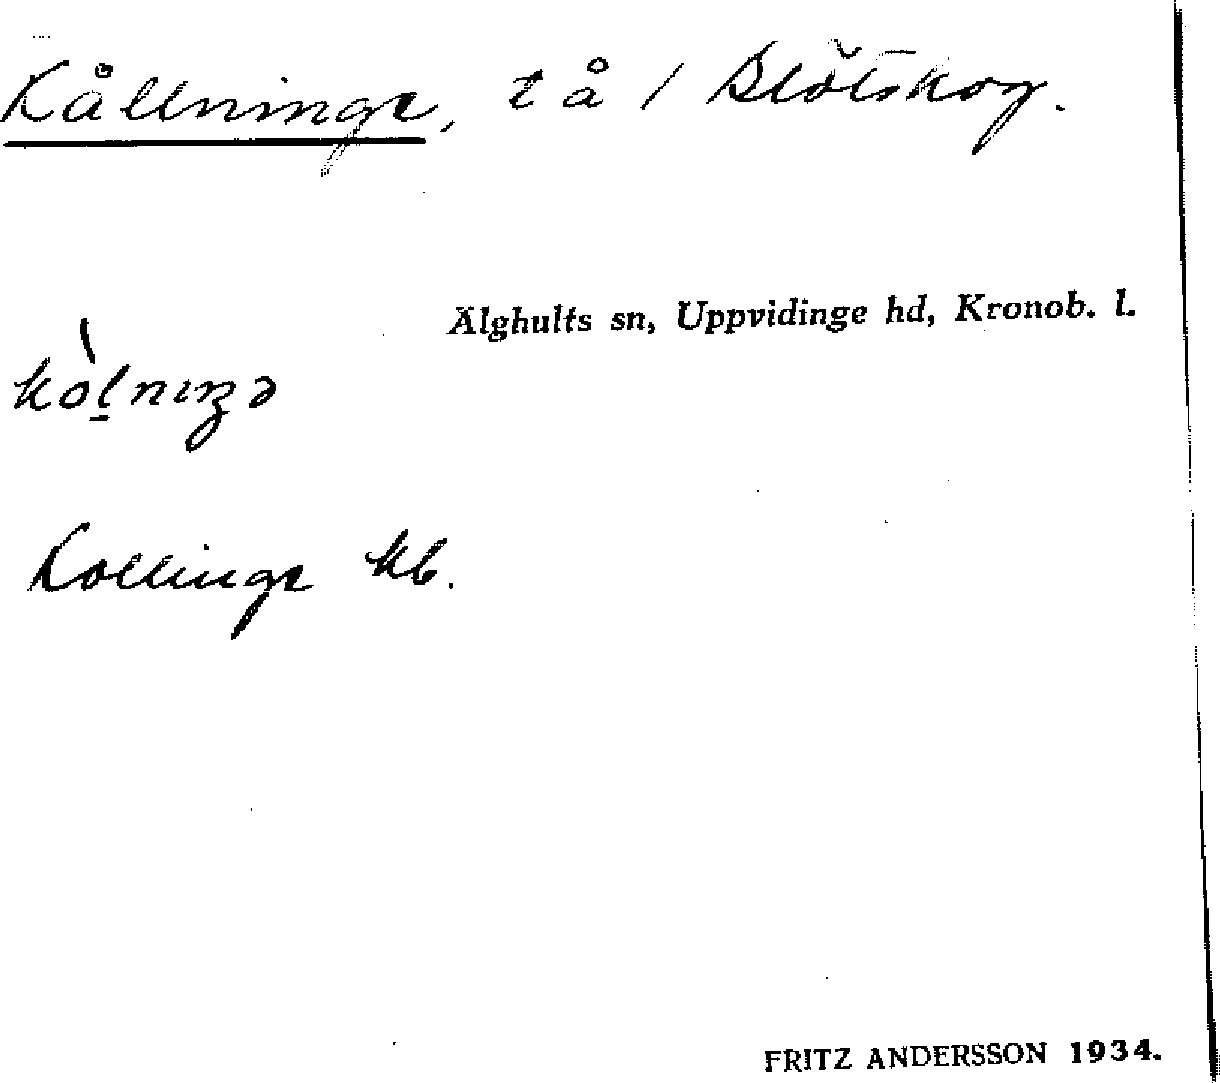 Kållninge, t å / Blötskog.
Älghults sn, Uppvidinge hd, Kronob. l.
Kollinge kb.
FRITZ ANDERSSON 1934.